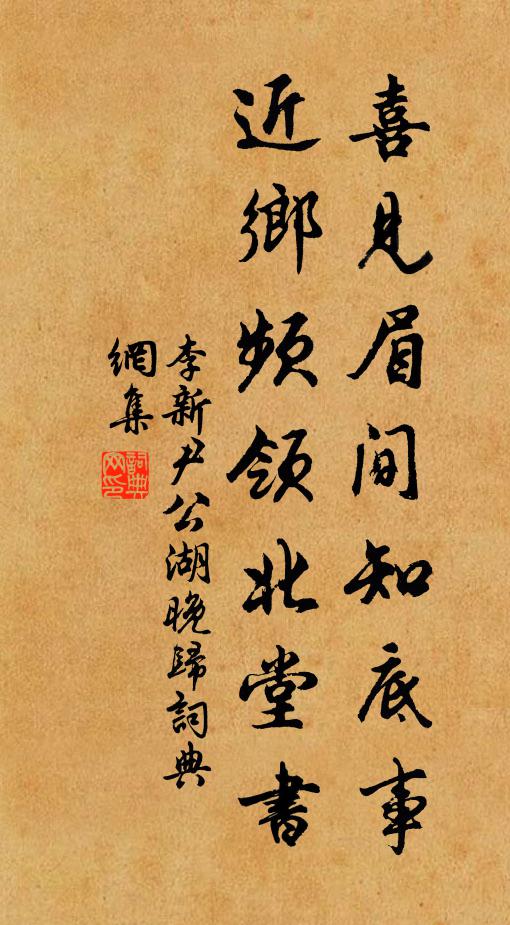 喜見眉間知底事
近鄉頻領北堂書
李新尹公湖晚歸詞典
網集
詞典網印